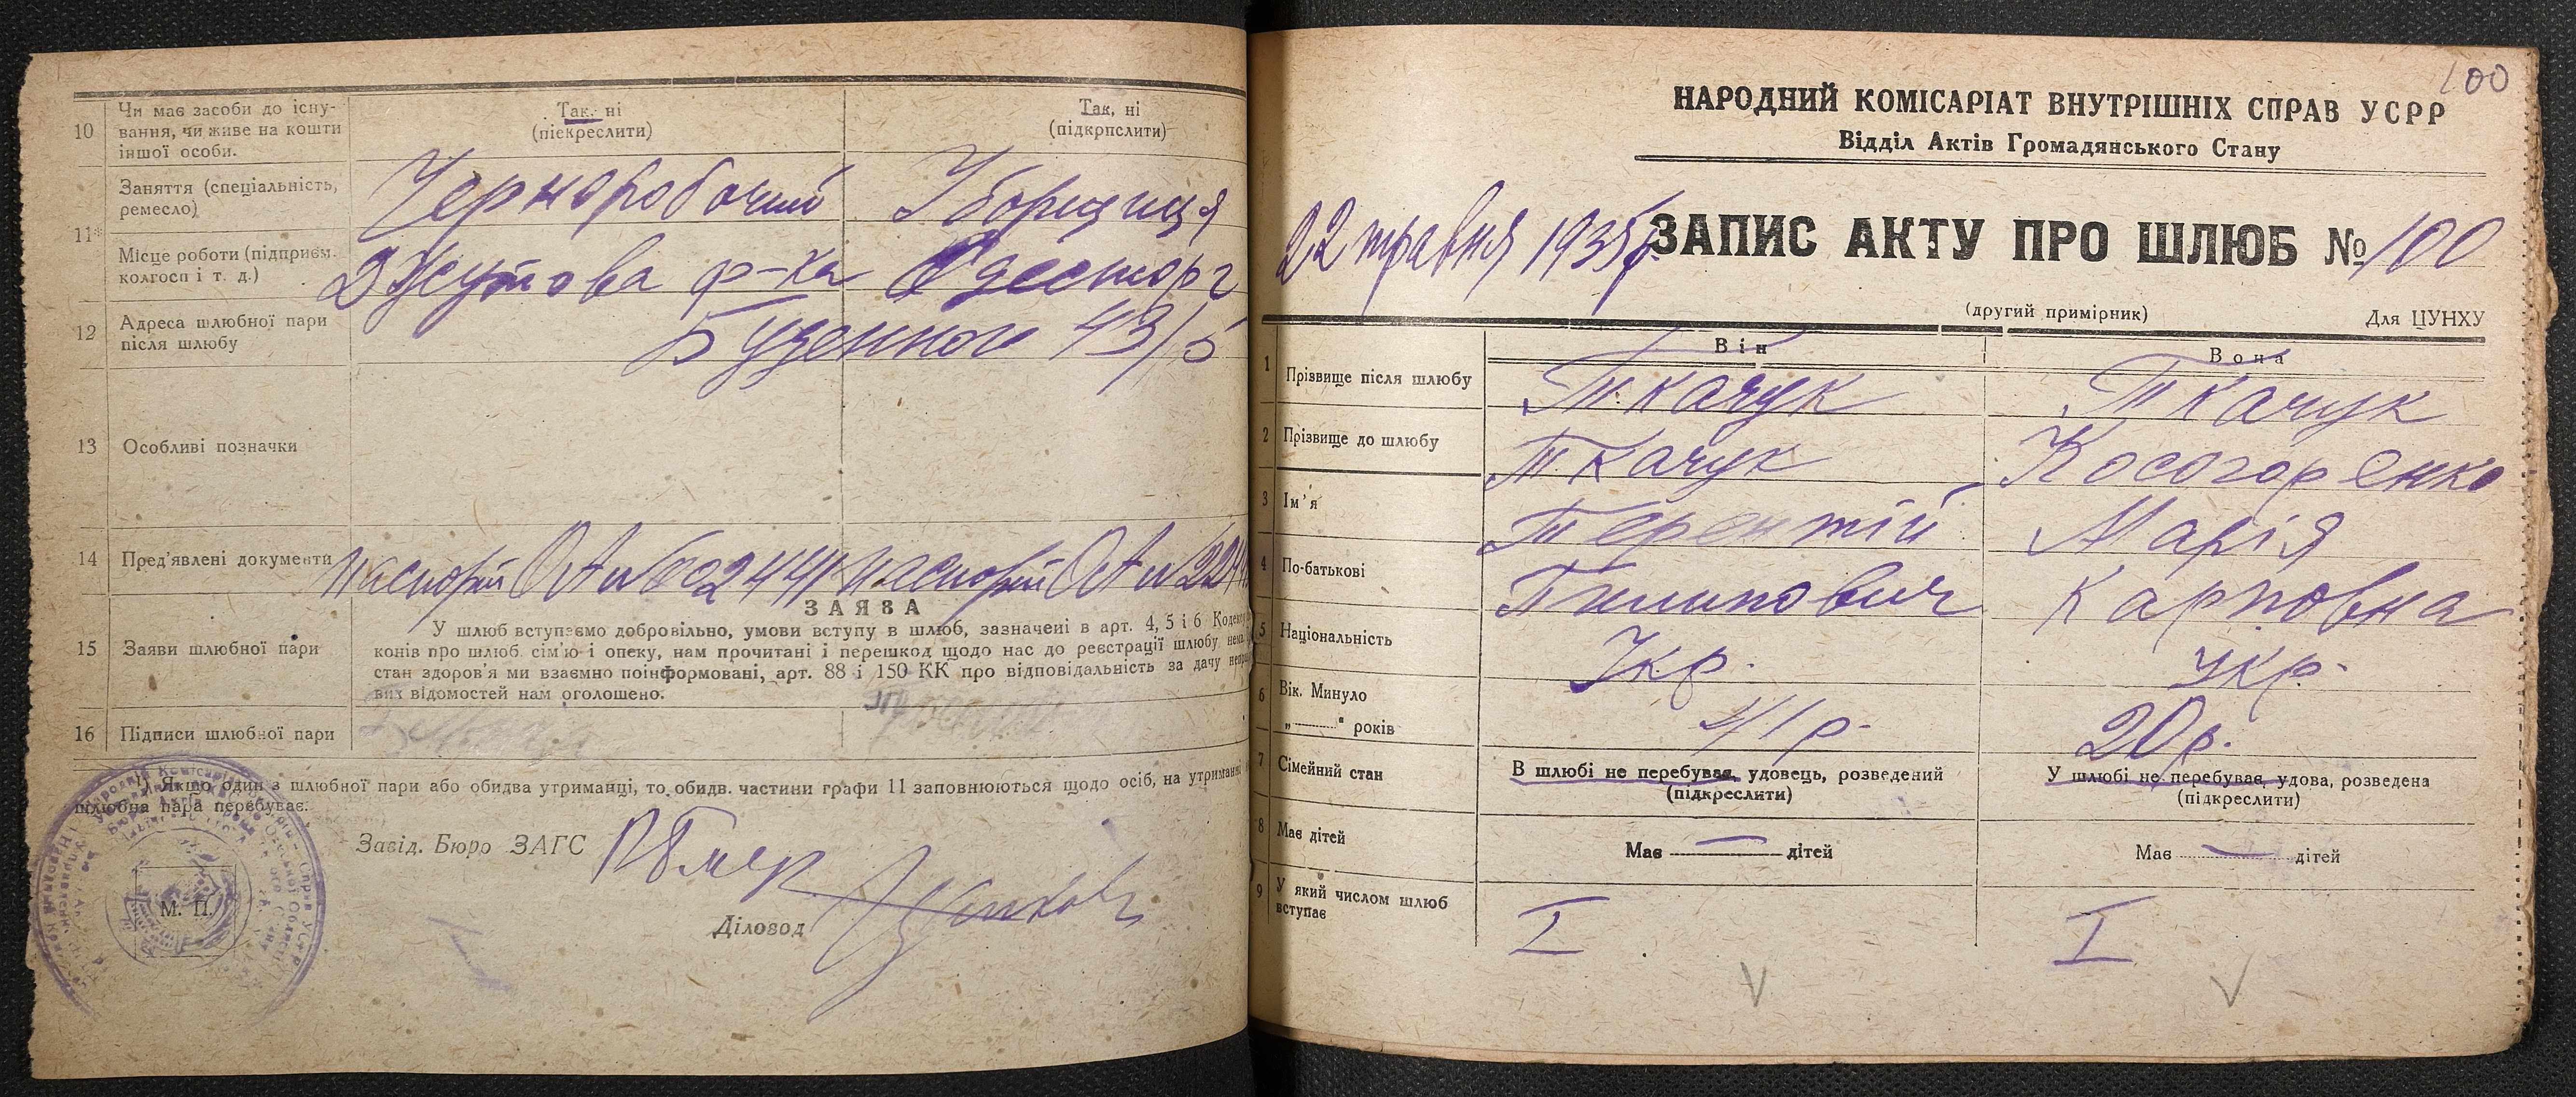 10 Чи має засоби до існу-
вання, чи живе на кошти
іншої особи.
Так, ні
(піекреслити)
Так, ні
(підкрпслити)
11* Заняття (спеціальність,
ремесло)
Черноробочий
Уборщиця
Місце роботи (підприєм.
колгосп і т. д.)
Джутова ф-ка
Одесторг
12 Адреса шлюбної пари
після шлюбу
Буденного 43/5
13 Особливі позначки
14 Пред'явлені документи
паспорт ОА №
паспорт ОА №
ЗАЯВА
15 Заяви шлюбної пари
У шлюб вступаємо добровільно, умови вступу в шлюб, зазначені в арт. 4, 5 і 6 Кодексу
конів про шлюб, сім'ю і опеку, нам прочитані і перешкод щодо нас до реєстрації шлюбу нема,
стан здоров'я ми взаємно поінформовані, арт. 88 і 150 КК про відповідальність за дачу
вих відомостей нам оголошено.
16 Підписи шлюбної пари
Якщо один з шлюбної пари або обидва утриманці, то обидв. частини графи 11 заповнюються щодо осіб, на утриманні
шлюбна пара перебуває.
Завід. Бюро ЗАГС
М. П.
Діловод
100
НАРОДНИЙ КОМІСАРІАТ ВНУТРІШНІХ СПРАВ УСРР
Відділ Актів Громадянського Стану
22 травня 1935р
ЗАПИС АКТУ ПРО ШЛЮБ № 100
(другий примірник)
Для ЦУНХУ
Він
Вона
1 Прізвище після шлюбу
Ткачук
Ткачук
2 Прізвище до шлюбу
Ткачук
Косогоренко
3 Ім'я
Терентій
Марія
4 По-батькові
Пилипович
Карповна
5 Національність
Укр.
Укр.
6 Вік. Минуло
„ " років
41 р.
20 р.
7 Сімейний стан
В шлюбі не перебував, удовець, розведений
(підкреслити)
У шлюбі не перебуває, удова, розведена
(підкреслити)
8 Має дітей
Має — дітей
Має — дітей
9 У який числом шлюб
вступає
I
I